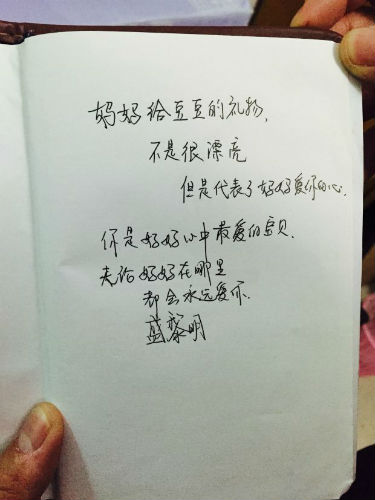 妈妈给豆豆的礼物,
不是很漂亮
但是代表了妈妈爱你的心.
你是妈妈心中最爱的宝贝.
无论妈妈在哪里
都会永远爱你.
蓝黎明